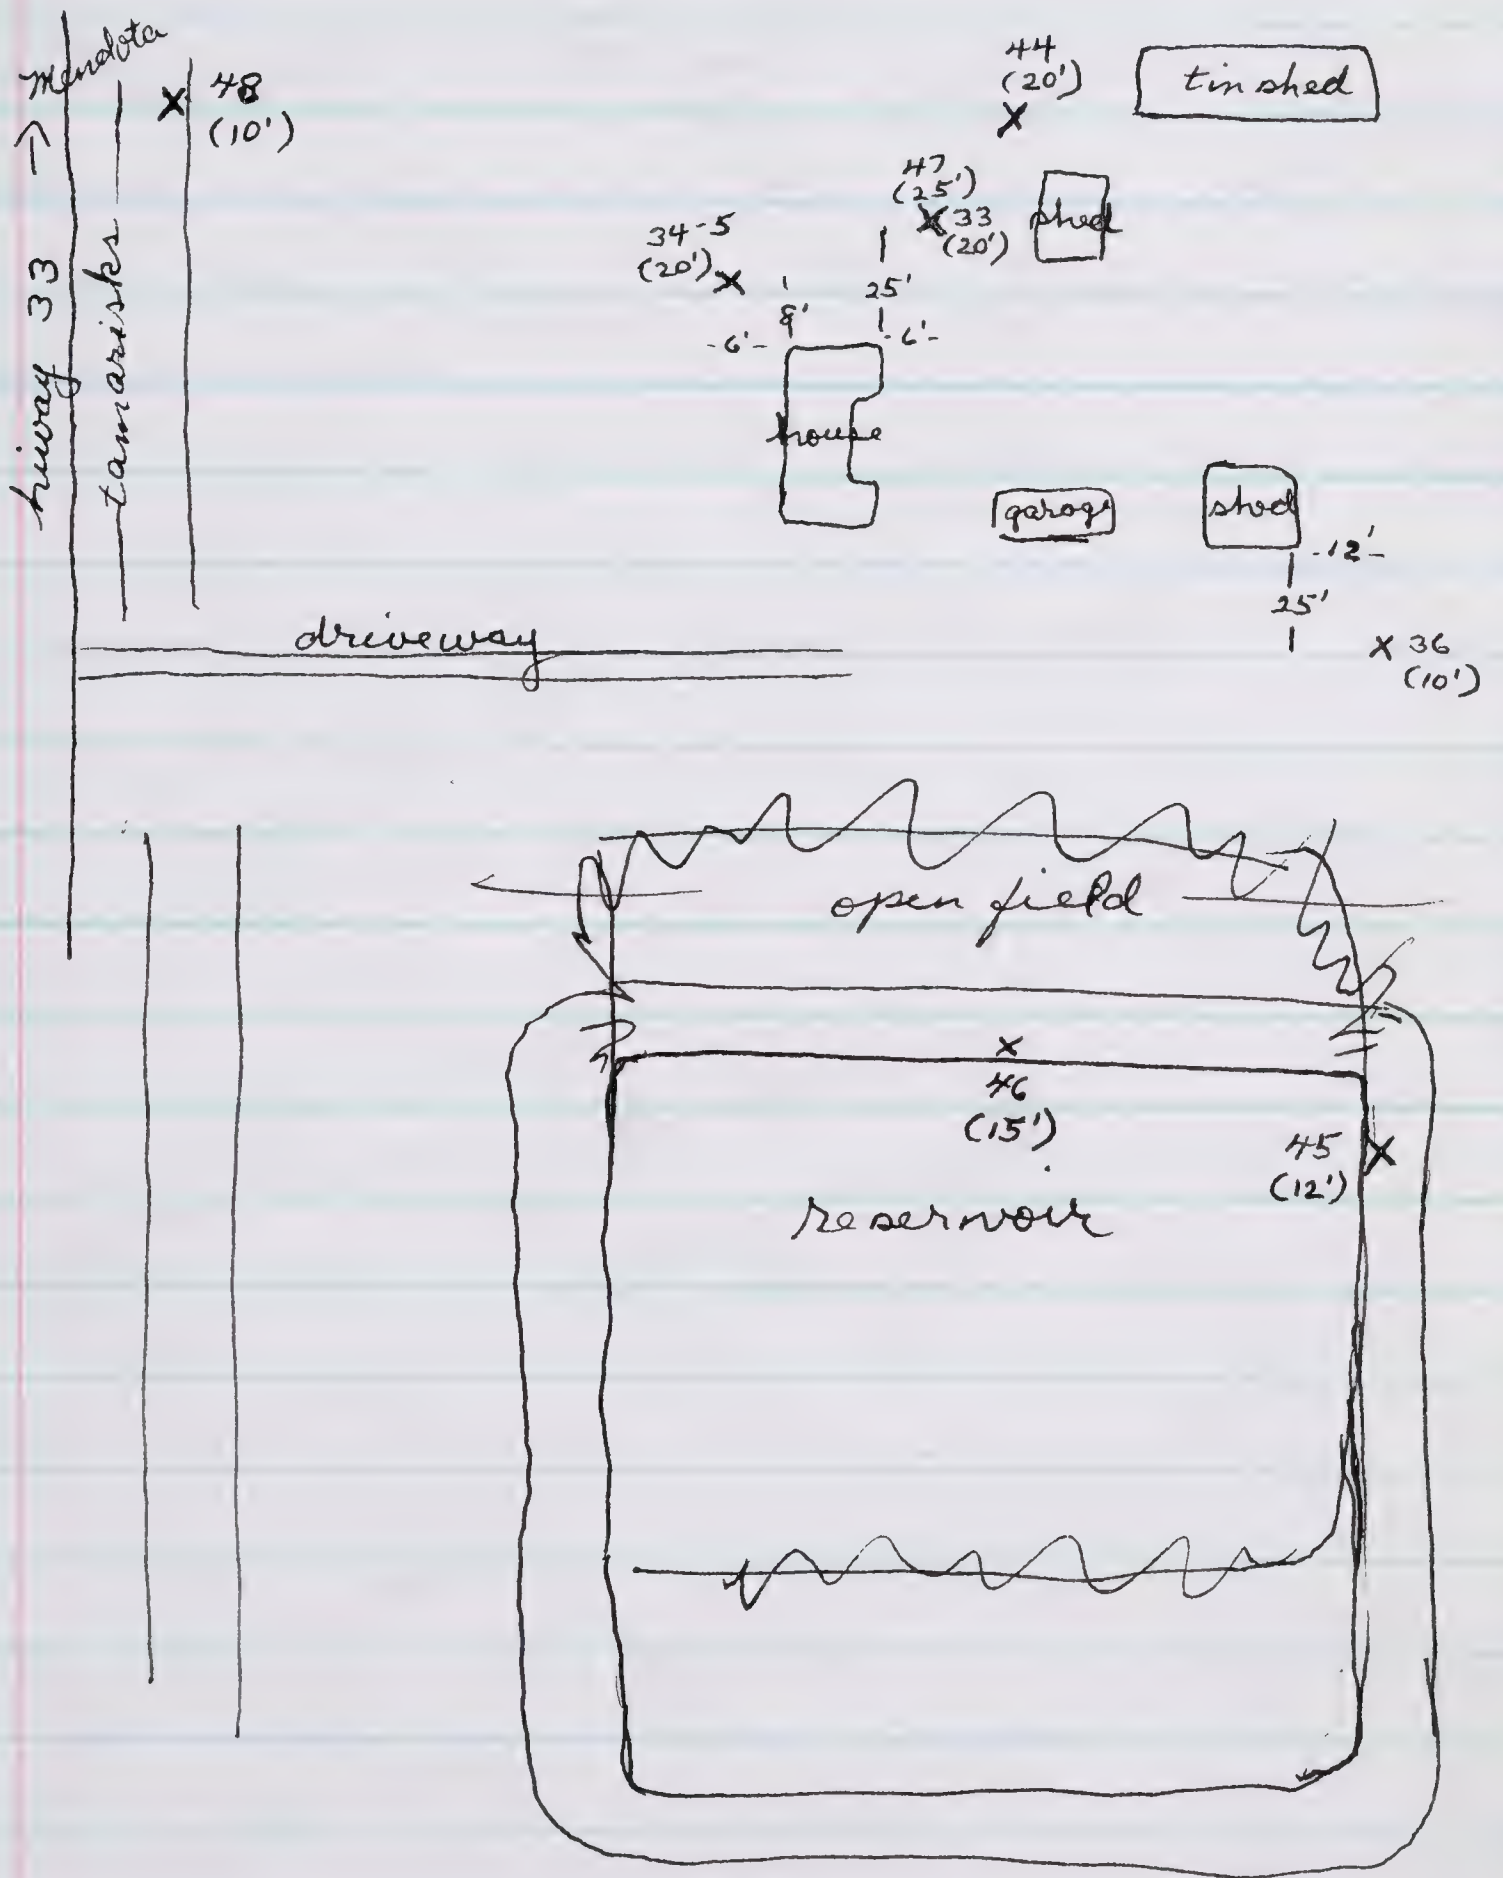 hiway 33 → Mendota
tamarisks
X 48
(10')
44
(20')
X
tin shed
47
(25')
X 33
(20')
shed
34-5
(20') X
8'
25'
-6'-
-6'-
house
garage
shed
-12'-
25'
X 36
(10')
driveway
open field
X
46
(15')
45 X
(12')
reservoir